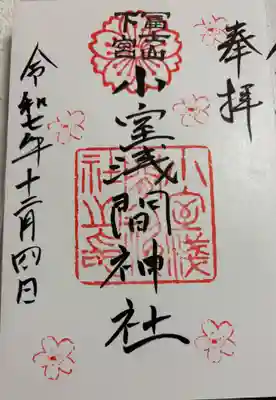 奉拝
冨士山
下宮
小室浅間神社
令和七年十二月四日
小室淺
社之印